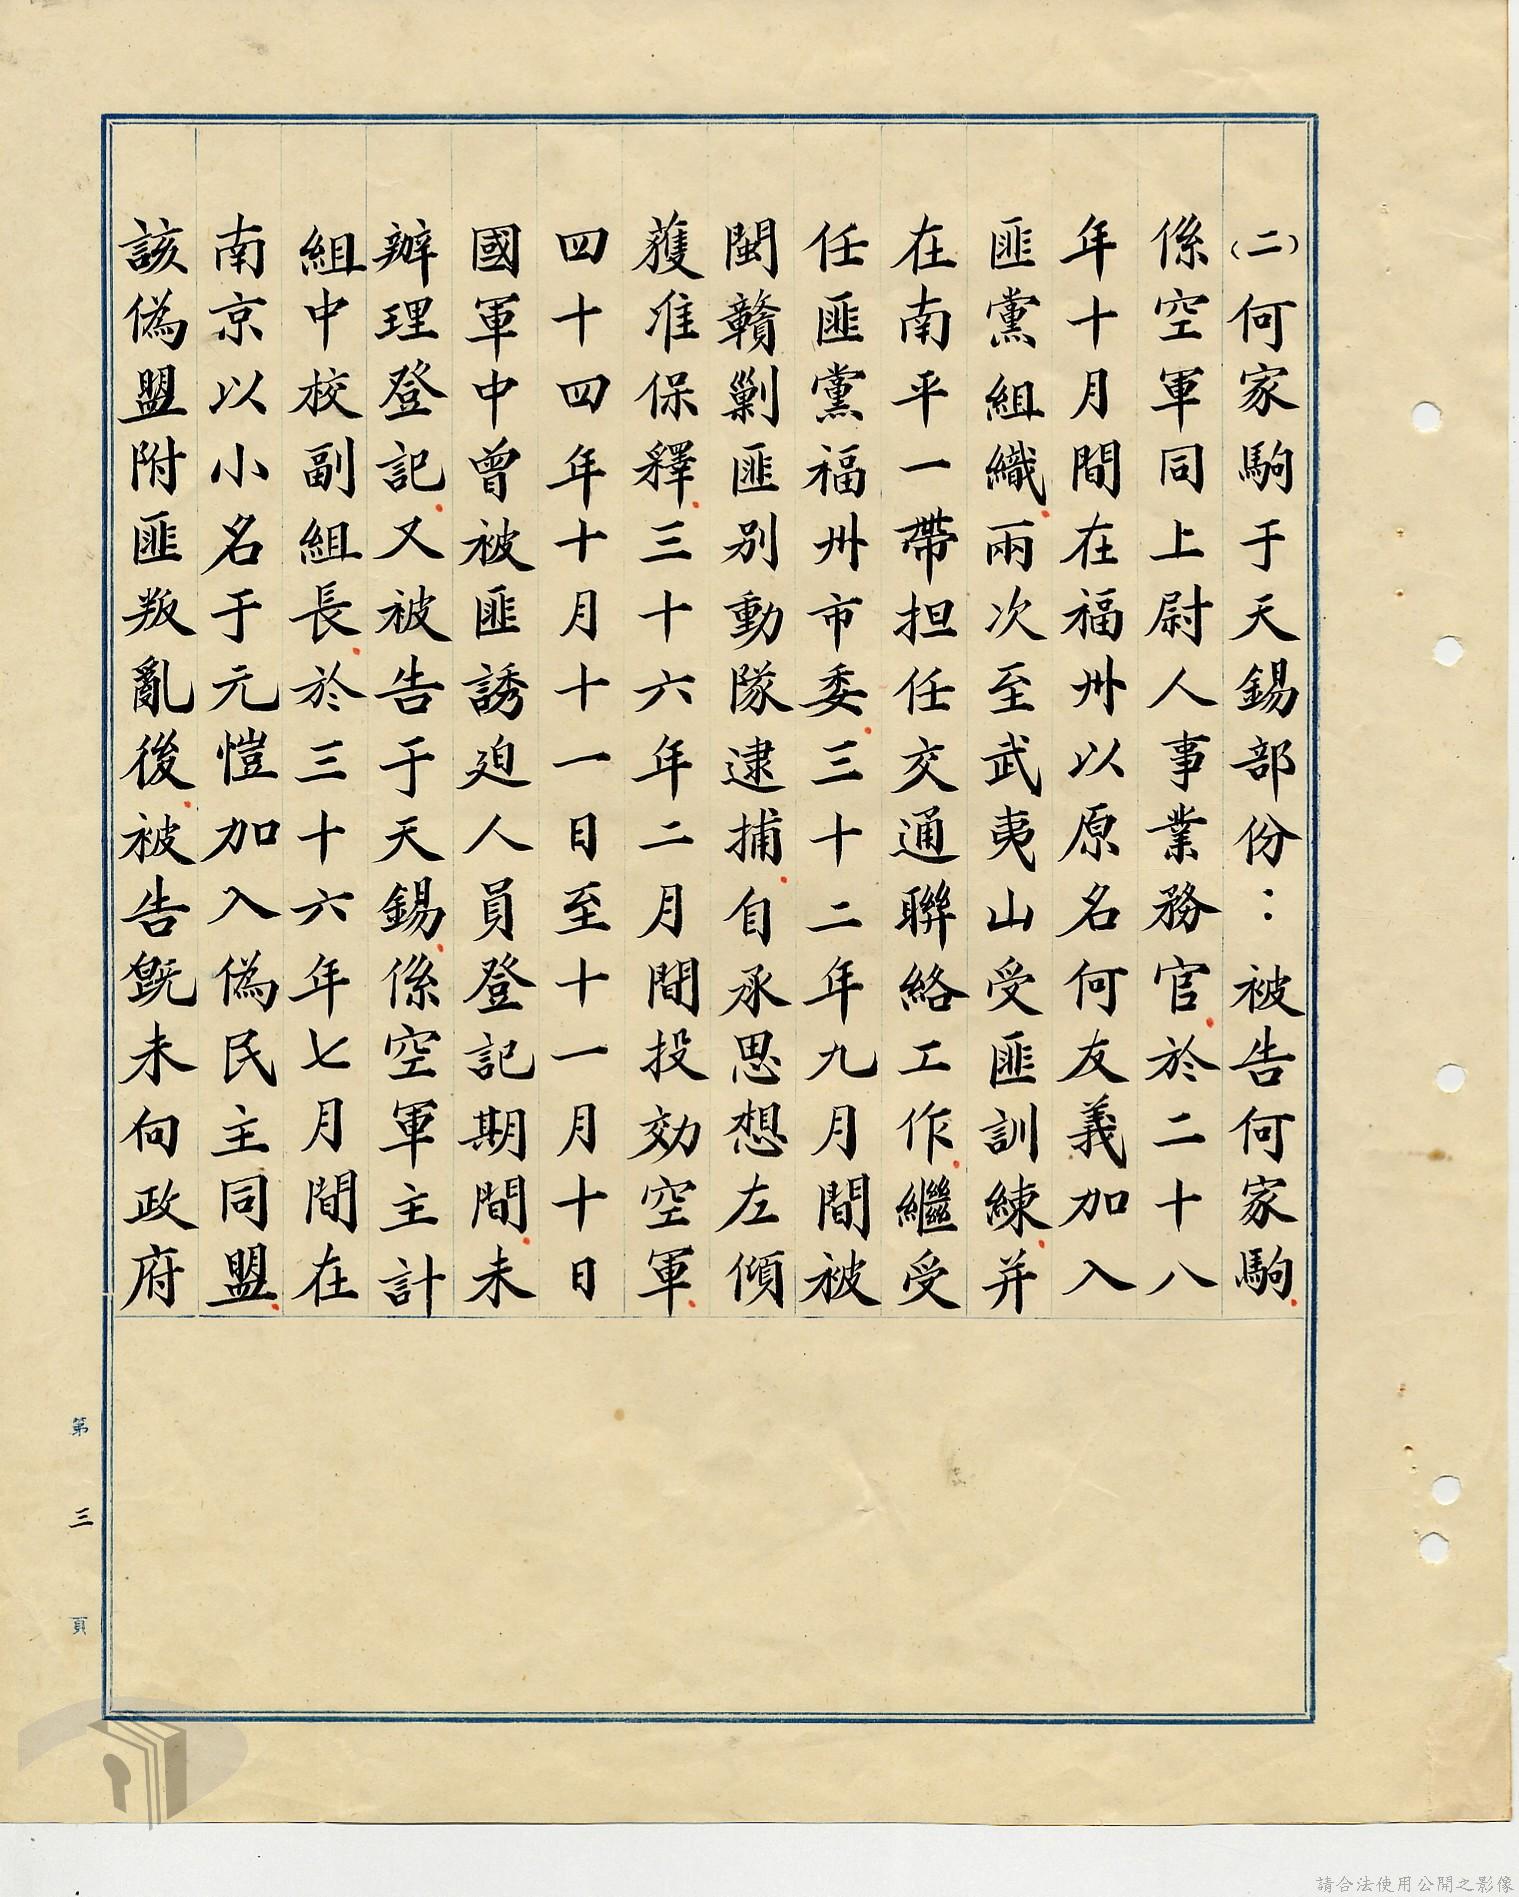 (二)何家駒于天錫部份：被告何家駒
係空軍同上尉人事業務官於二十八
年十月間在福州以原名何友義加入
匪黨組織兩次至武夷山受匪訓練并
在南平一帶担任交通聯絡工作繼受
任匪黨福州市委三十二年九月間被
閩贛剿匪別動隊逮捕自承思想左傾
獲准保釋三十六年二月間投効空軍
四十四年十月十一日至十一月十日
國軍中曾被匪誘迫人員登記期間未
辦理登記又被告于天錫係空軍主計
組中校副組長於三十六年七月間在
南京以小名于元愷加入偽民主同盟
該偽盟附匪叛亂後被告旣未向政府
第三頁
請合法使用公開之影像